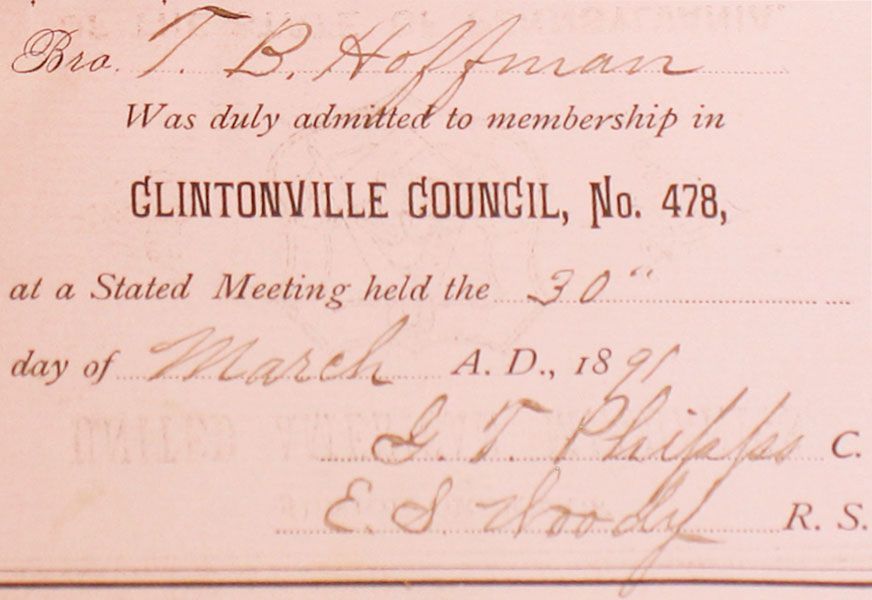 Bro. T. B. Hoffman
Was duly admitted to membership in
CLINTONVILLE COUNCIL, No. 478,
at a Stated Meeting held the 30"
day of March A. D., 1891
G. T. Phipps C.
E. S. Woody R. S.